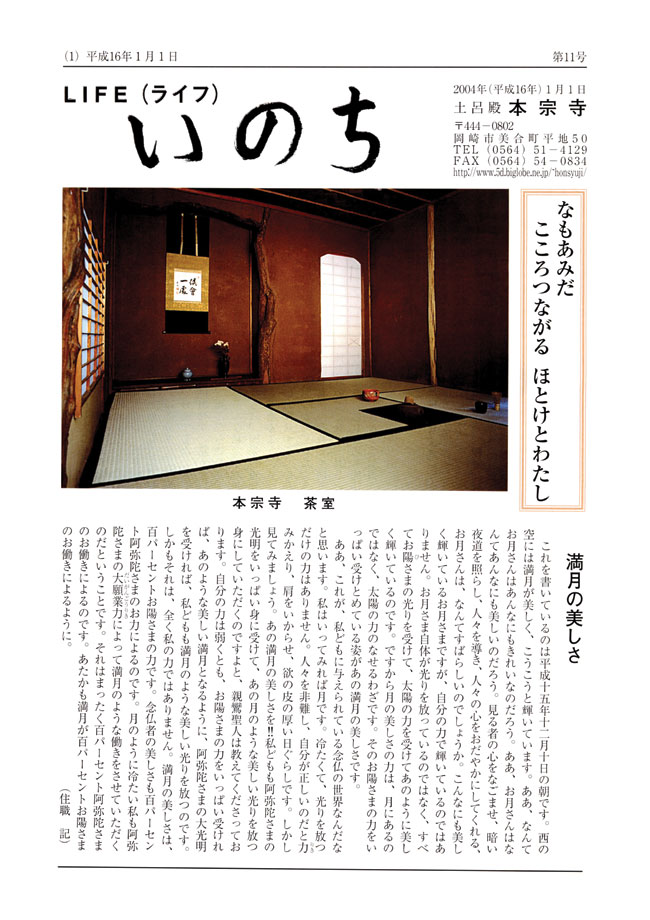 (1) 平成16年1月1日
第11号
LIFE（ライフ）
いのち
2004年(平成16年)1月1日
土呂殿 本宗寺
〒444－0802
岡崎市美合町平地50
TEL (0564) 51－4129
FAX (0564) 54－0834
http://www.5d.biglobe.ne.jp/~honsyuji/
なもあみだ
こころつながる ほとけとわたし
本宗寺 茶室
満月の美しさ
これを書いているのは平成十五年十二月十日の朝です。西の
空には満月が美しく、こうこうと輝いています。ああ、なんて
お月さんはあんなにもきれいなのだろう。ああ、お月さんはな
んてあんなにも美しいのだろう。見る者の心をなごませ、暗い
夜道を照らし、人々を導き、人々の心をおだやかにしてくれる、
お月さんは、なんてすばらしいのでしょうか。こんなにも美し
く輝いているお月さまですが、自分の力で輝いているのではあ
りません。お月さま自体が光りを放っているのではなく、すべ
てお陽さまの光りを受けて、太陽の力を受けてあのように美し
く輝いているのです。ですから月の美しさの力は、月にあるの
ではなく、太陽の力のなせるわざです。そのお陽さまの力をい
っぱい受けとめている姿があの満月の美しさです。
ああ、これが、私どもに与えられている念仏の世界なんだな
と思います。私はいってみれば月です。冷たくて、光りを放つ
だけの力はありません。人々を非難し、自分が正しいのだと力
みかえり、肩をいからせ、欲の皮の厚い日ぐらしです。しかし
見てみましょう。あの満月の美しさを!!私どもも阿弥陀さまの
光明をいっぱい身に受けて、あの月のような美しい光りを放つ
身にしていただくのですよと、親鸞聖人は教えてくださってお
ります。自分の力は弱くとも、お陽さまの力をいっぱい受けれ
ば、あのような美しい満月となるように、阿弥陀さまの大光明
を受ければ、私どもも満月のような美しい光りを放つのです。
しかもそれは、全く私の力ではありません。満月の美しさは、
百パーセントお陽さまの力です。念仏者の美しさも百パーセン
ト阿弥陀さまのお力によるのです。月のように冷たい私も阿弥
陀さまの大願業力によって満月のような働きをさせていただく
のだということです。それはまったく百パーセント阿弥陀さま
のお働きによるのです。あたかも満月が百パーセントお陽さま
のお働きによるように。
（住職 記）